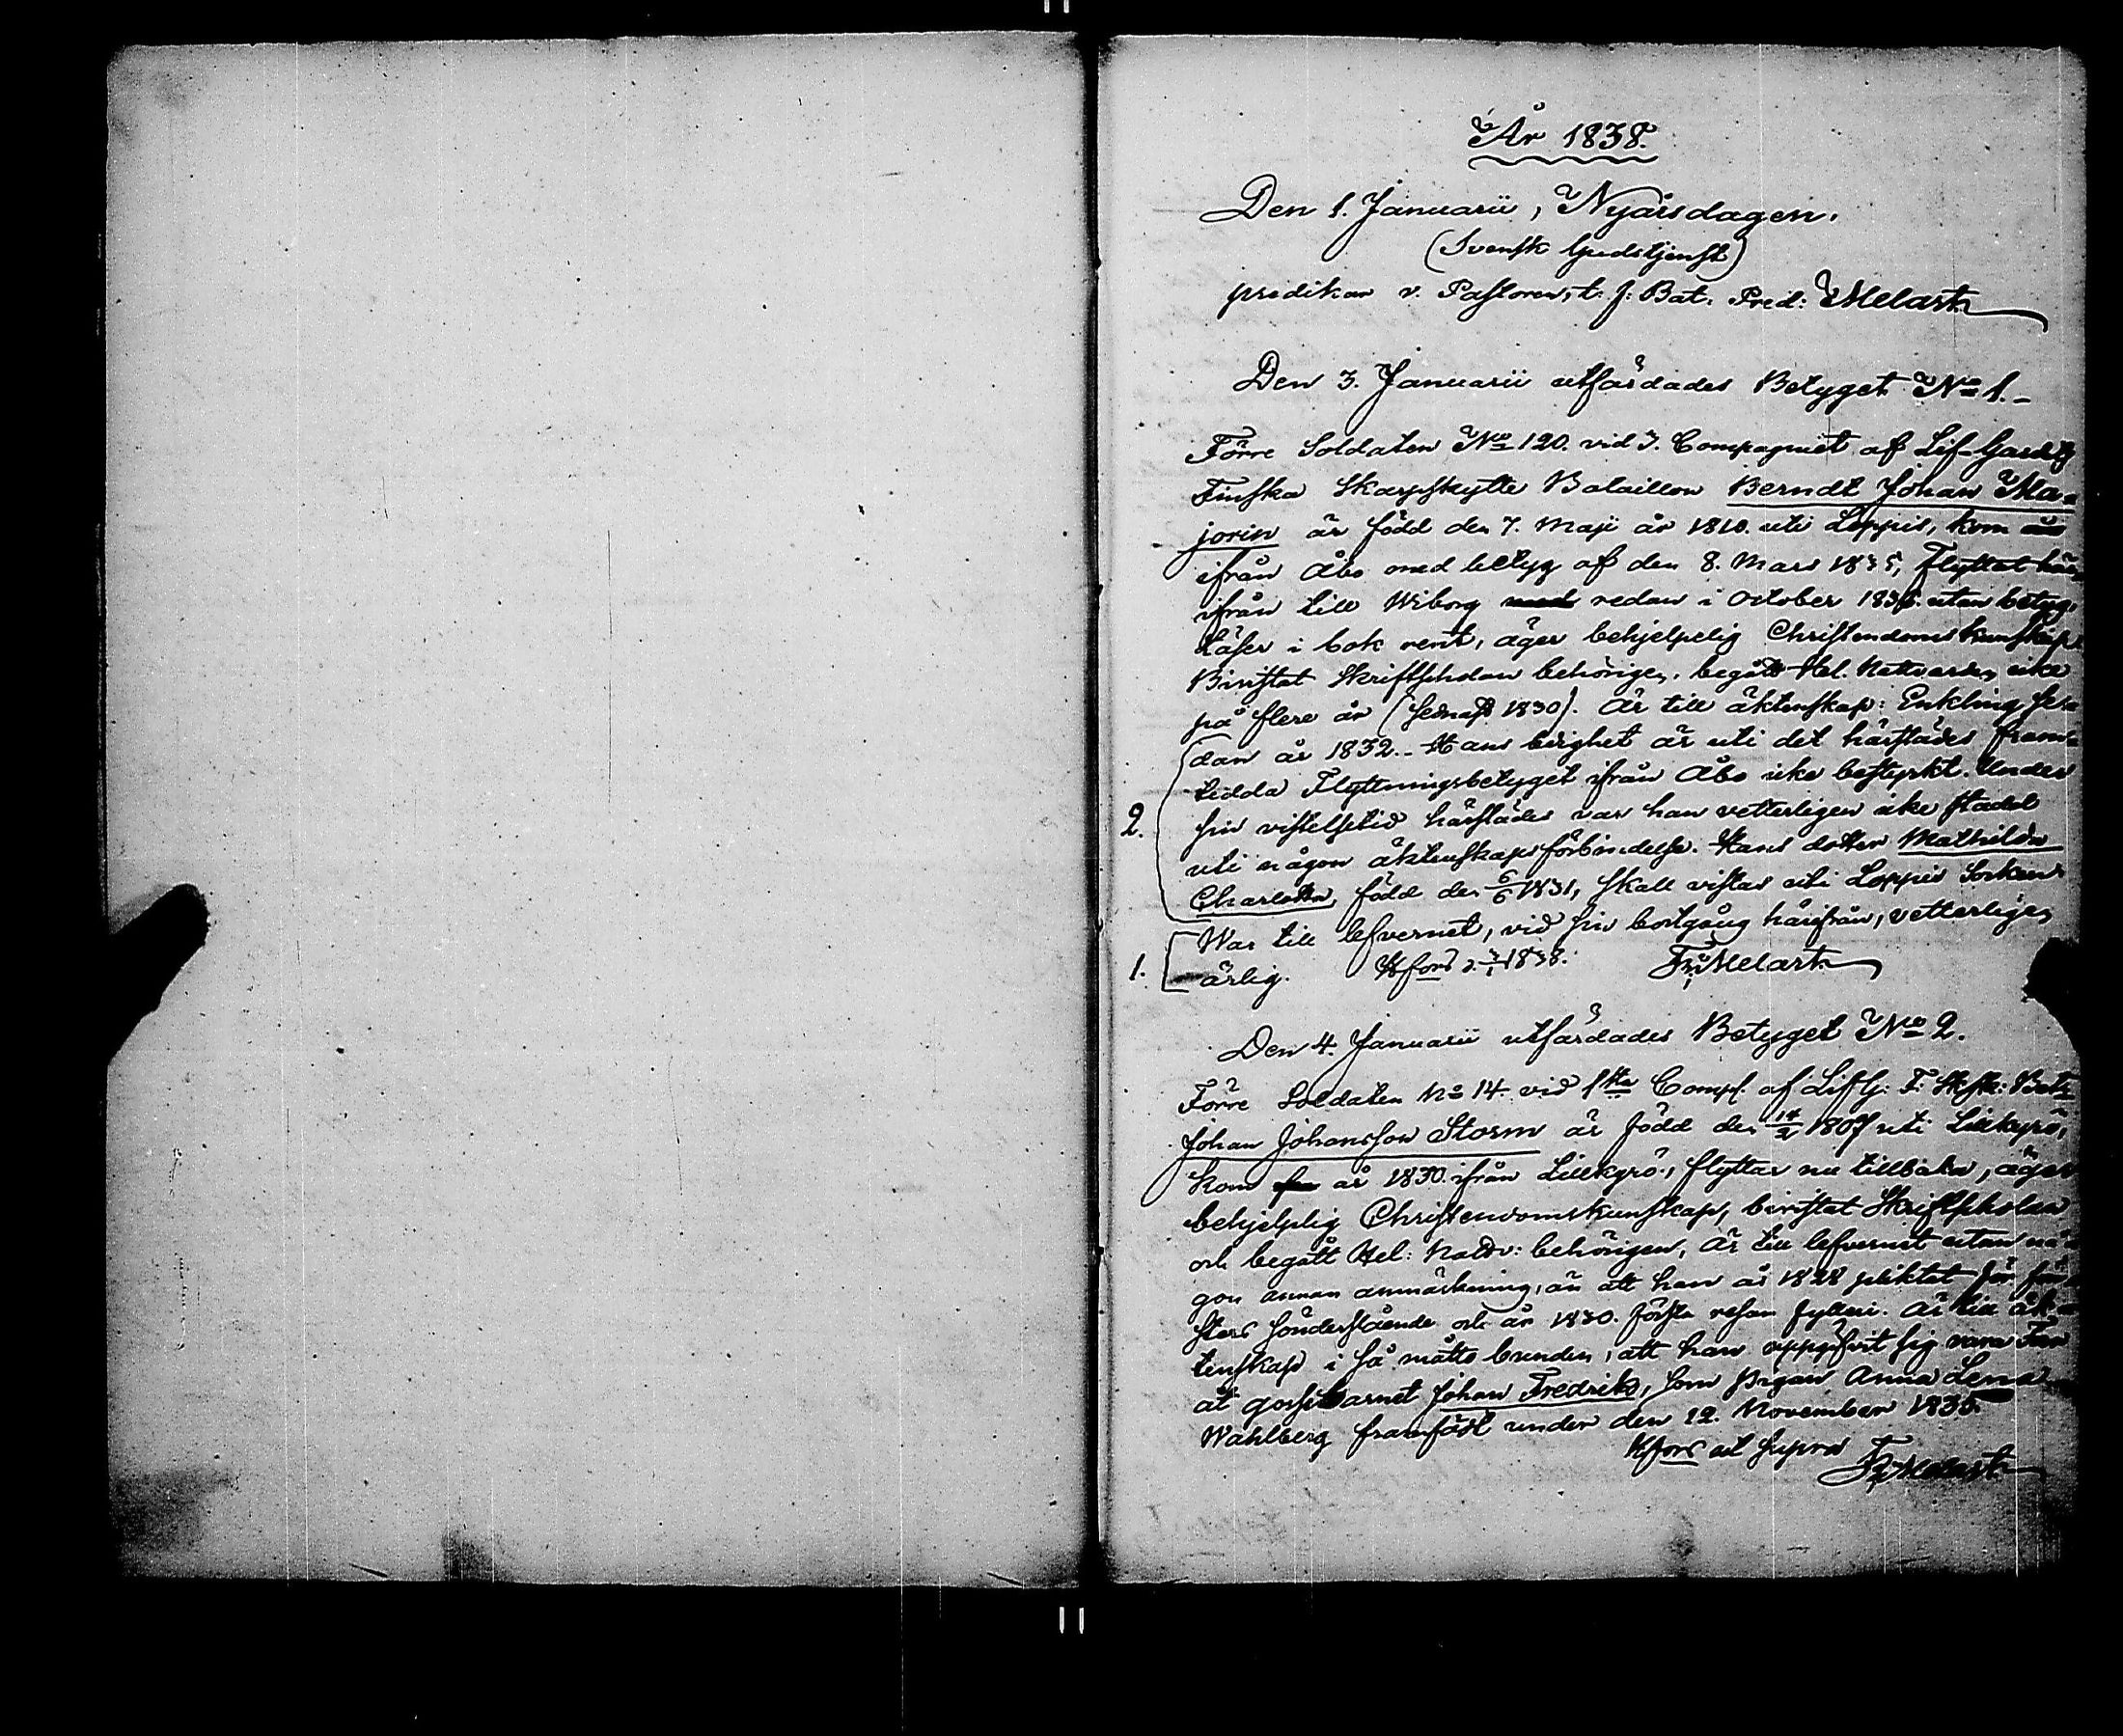 År 1838.
Den 1. Januarii, Nyårsdagen.
(Svensk Gudstjenst)
predikar v. Pastoren, t. f. Bat. Pred: Melart
Den 3. Januarii utfärdades Betyget No 1.-
Förre Soldaten No 120. vid 3. Compagniet af Lif-Gardets
Finska Skarpskytte Bataillon Berndt Johan Ma-
jorin är född den 7. Maji år 1810. uti Loppis, kom
ifrån Åbo med betyg af den 8. Mars 1835, Flyttat här
ifrån till Wiborg redan i October 1836. utan betyg.
Läser i bok rent, äger behjelpelig Christendomskunskap,
Bivistat Skriftscholan behörigen, begått Hel. Nattvarden icke
på flere år (sednast 1830). Är till äktenskap: Enkling se-
dan år 1832.- Hans ledighet är uti det härstädes fram-
tedda Flyttningsbetyget ifrån Åbo icke bestyrkt. Under
2. sin vistelsetid härstädes var han vetterligen icke stadd
uti någon äktenskapsförbindelse. Hans dotter Mathilda
Charlotta, född den 6/6 1831, skall vistas uti Loppis Socken
War till lefvernet, vid sin bortgång härifrån, vetterligen
1. ärlig. Hfors d. 3/1 1838. Fr: Melart
Den 4. Januarii utfärdades Betyget No 2.
Förre Soldaten No 14. vid 1sta Comp. af Lif G: F: Sk.sk: Bat:
Johan Johansson Storm är född den 14/2 1807 uti Lillkyrö,
kom år 1830. ifrån Lillkyrö, flyttar nu tillbaka, äger
behjelplig Christendomskunskap, bivistat Skriftscholan
och begått Hel: Nattv: behörigen, Är till lefvernet utan nå-
gon annan anmärkning, än att han år 1828 pliktat för fön-
sters sönderslående och år 1830. första resan fylleri. Är till äk-
tenskap i så måtto bunden, att han uppgifvit sig vara Far
åt gossebarnet Johan Fredrik, som pigan Anna Lena
Wahlberg framfödt under den 12. November 1835.
Hfors ut supra
Fr: Melart